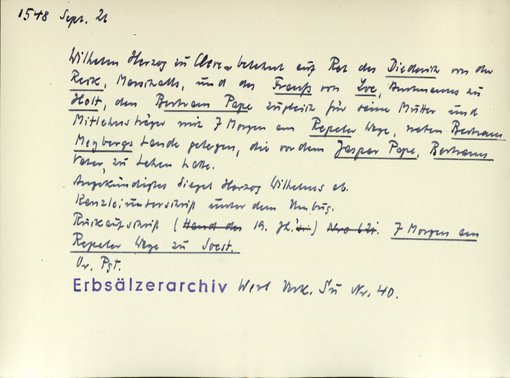 1548 Sept. 21
Wilhelm Herzog zu Cleve belehnt auf Rat des Diederich von der
Reck, Marschalls, und des Frantz von Loe, Amtmannes zu
Holt, den Bertram Pape zugleich für seine Mutter und
Mitlehnsträger mit 7 Morgen am Repeler Wege, neben Bertrams
Meybergs Lande gelegen, die vordem Jaspar Pape, Bertrams
Vater, zu Lehen hatte.
Angekündigtes Siegel Herzog Wilhelms ab.
Kanzleiunterschrift unter dem Umbug.
Rückaufschrift (Hand des 19. Jh.) Nro 62. 7 Morgen am
Repeler Wege zu Soest.
Or. Pgt.
Erbsälzerarchiv Werl Urk. Nr. 40.